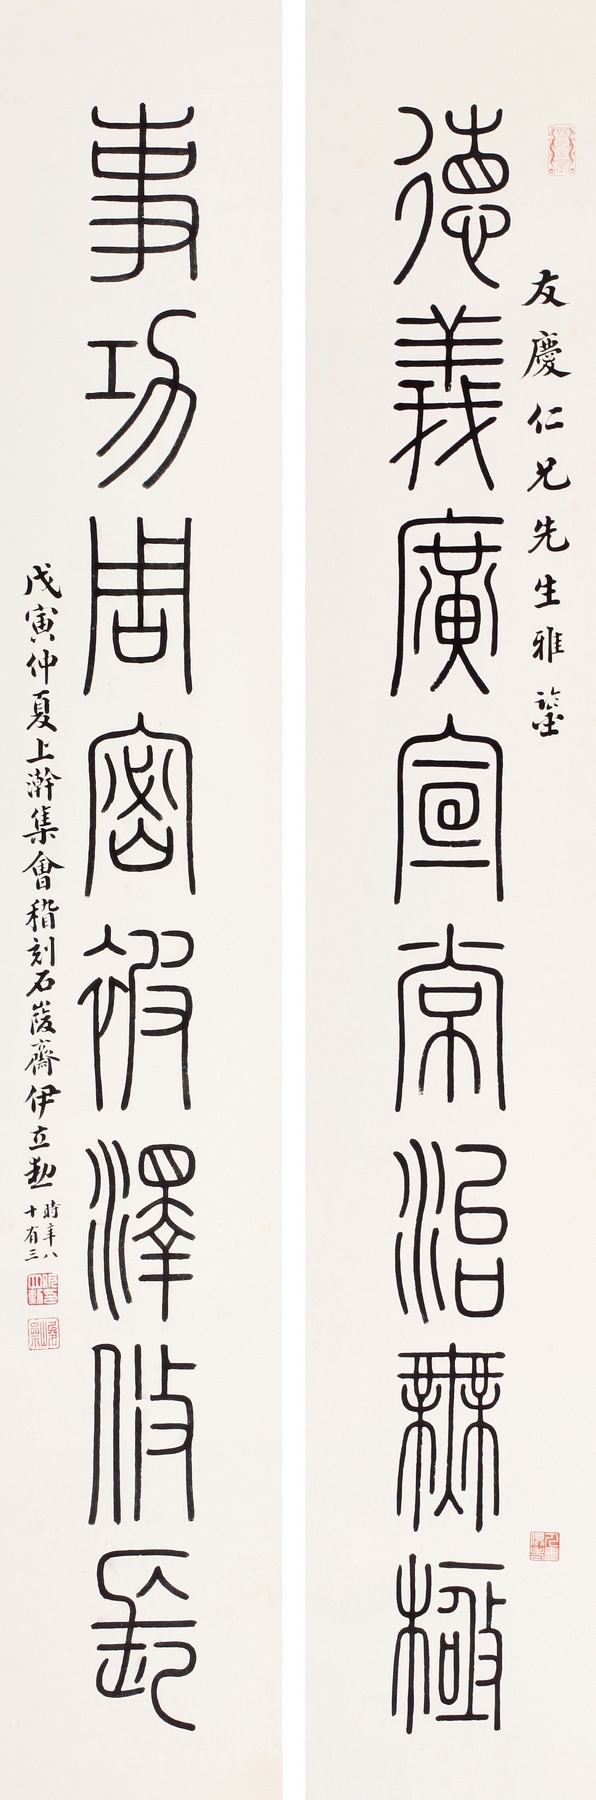 友慶仁兄先生雅鑒
德義廣宣常治無極
事功周密被澤攸長
戊寅仲夏上澣集會稽刻石峻齋伊立勳
時年八
十有三